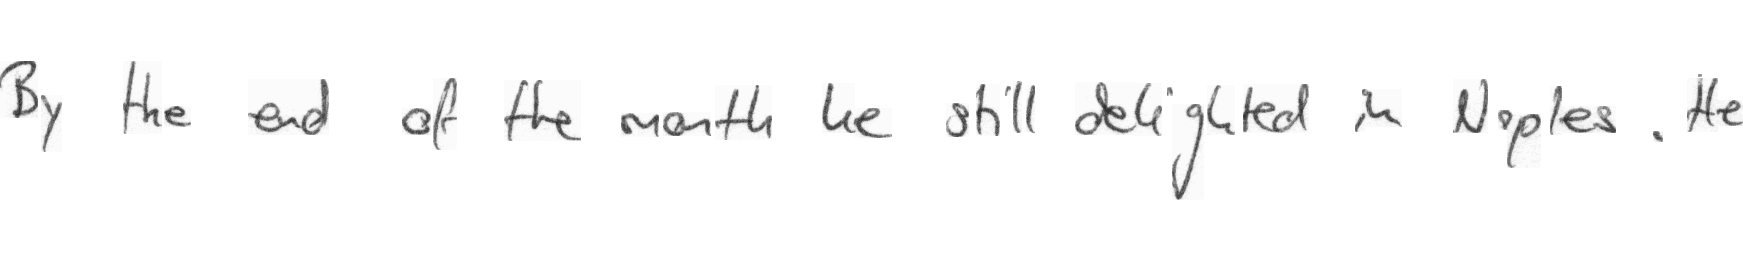 By the end of the month he still delighted in Naples. He